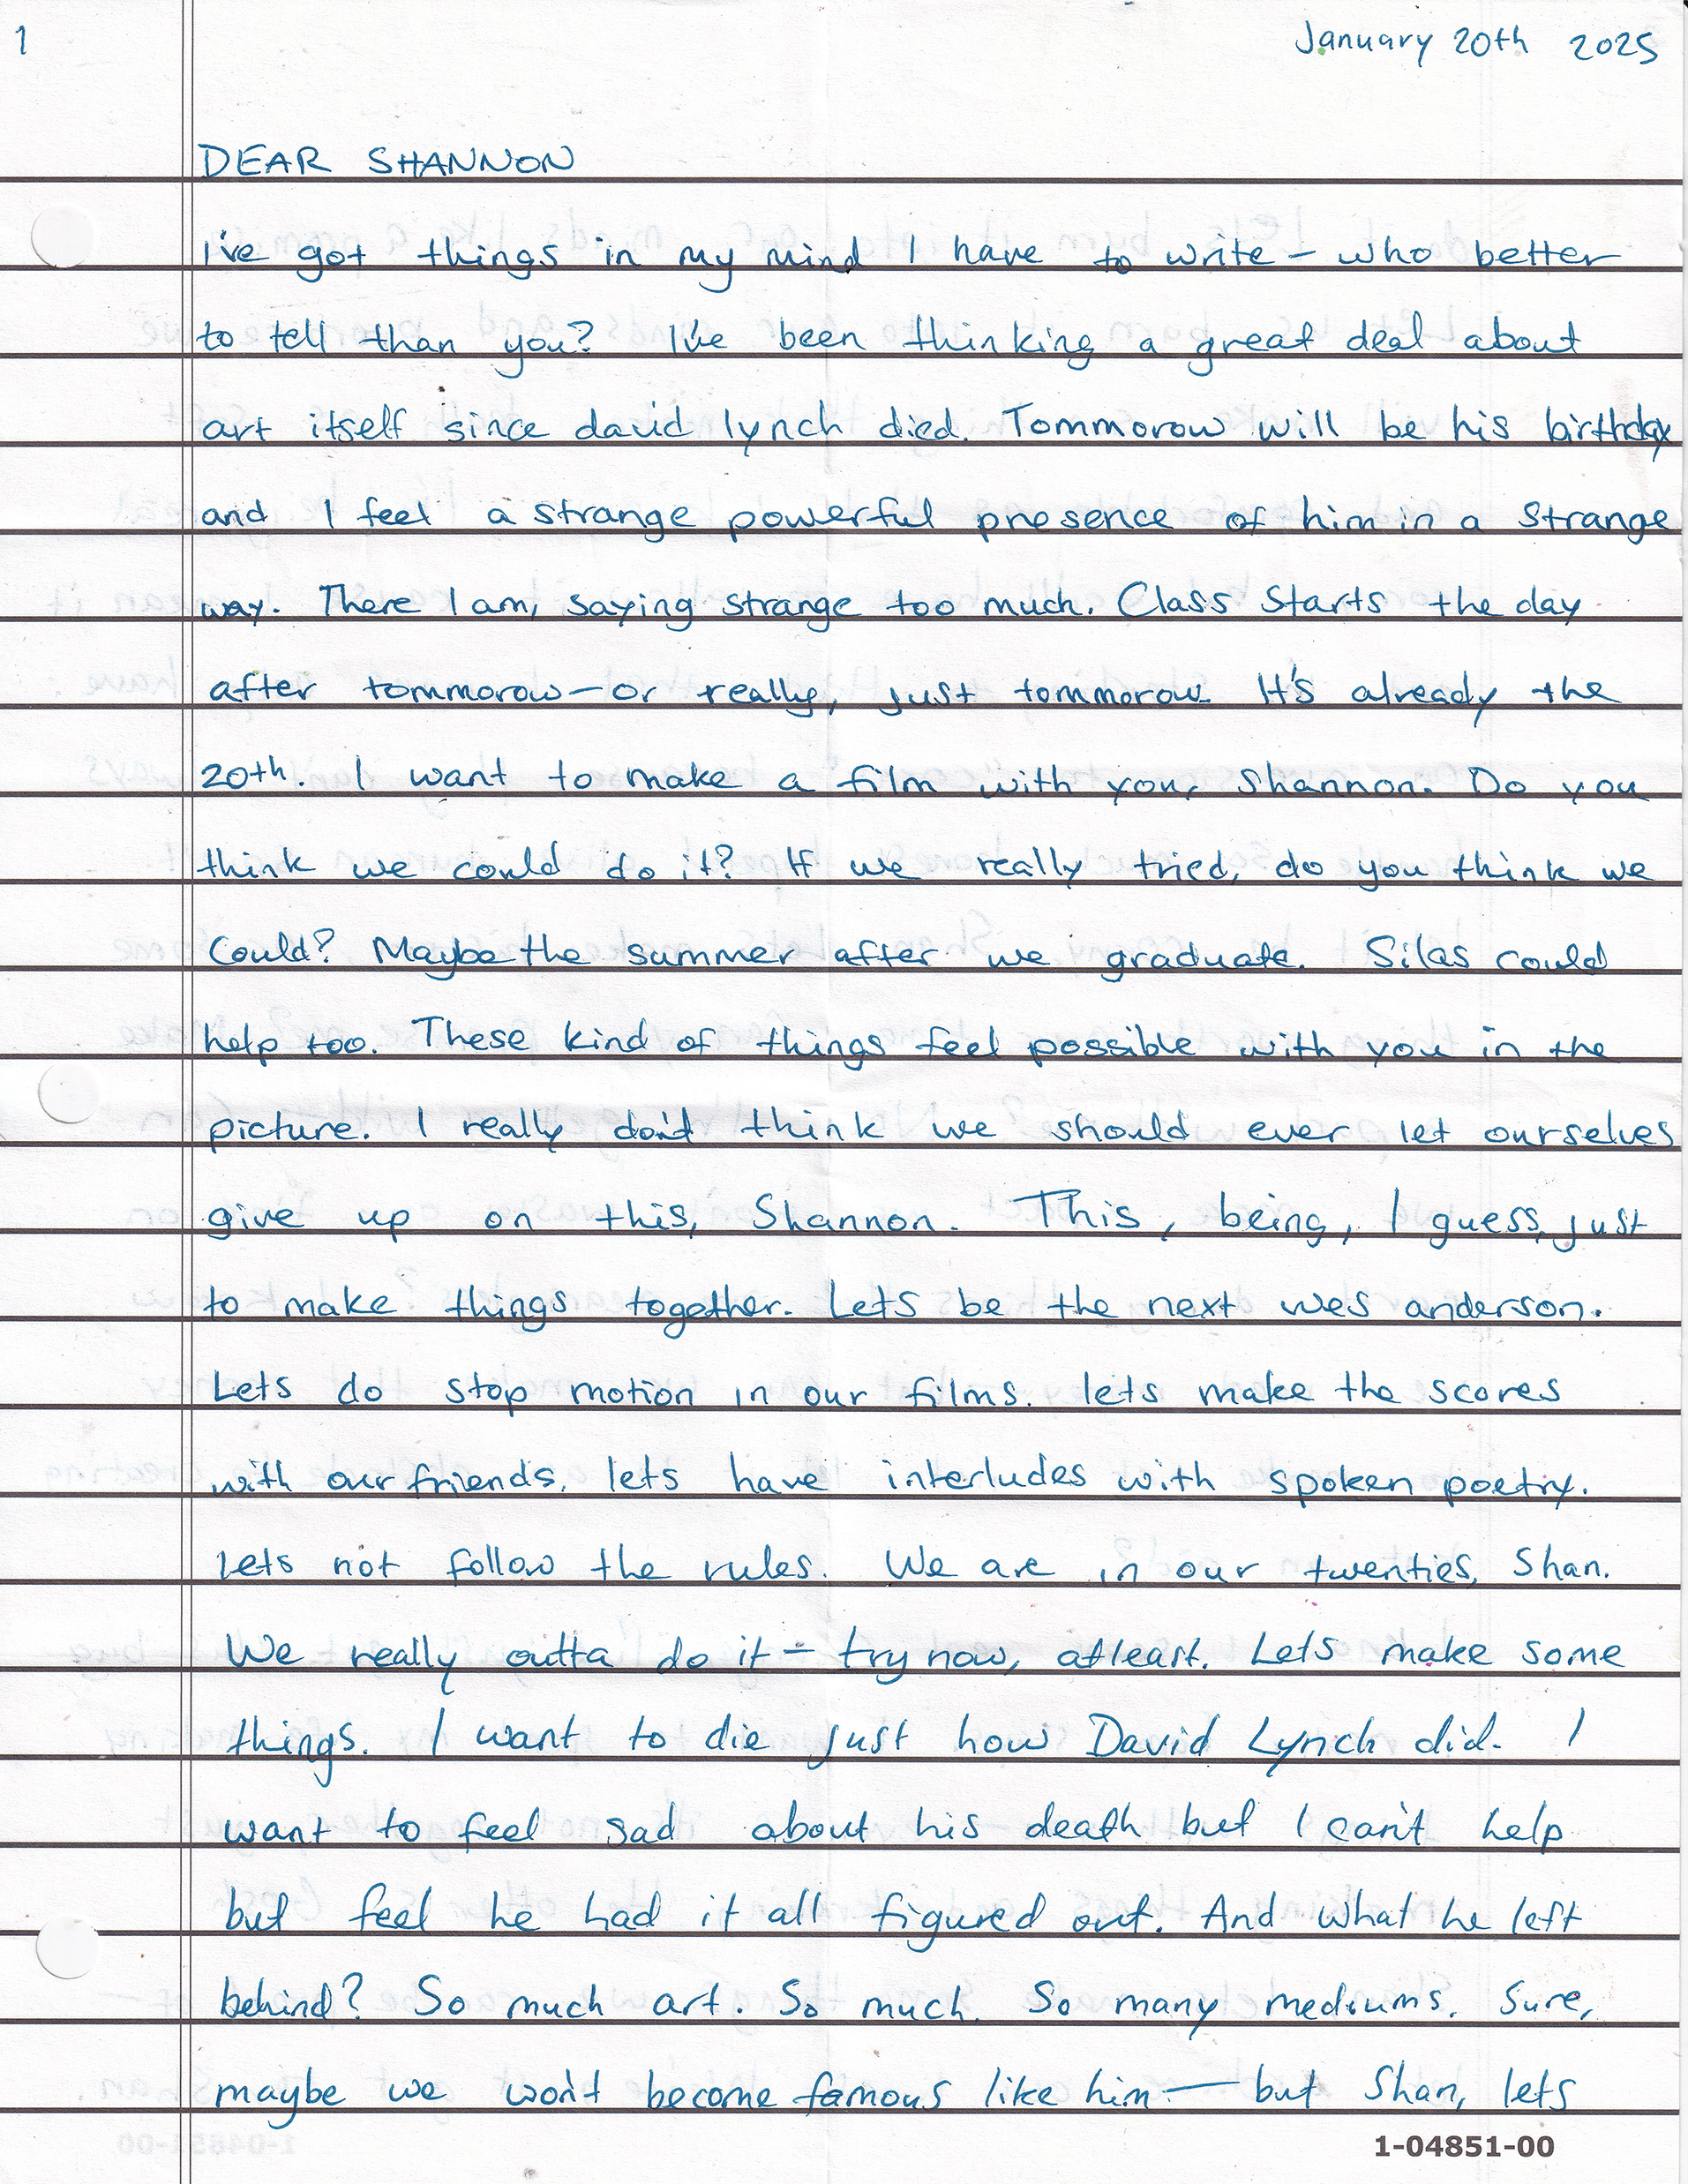 1
January 20th 2025
DEAR SHANNON
I've got things in my mind I have to write – who better
to tell than you? I've been thinking a great deal about
art itself since david lynch died. Tommorow will be his birthday
and I feel a strange powerful presence of him in a strange
way. There I am, saying strange too much. Class starts the day
after tommorow—or really, just tommorow. It's already the
20th. I want to make a film with you, Shannon. Do you
think we could do it? If we really tried, do you think we
could? Maybe the summer after we graduate. Silas could
help too. These kind of things feel possible with you in the
picture. I really don't think we should ever let ourselves
give up on this, Shannon. This, being, I guess, just
to make things together. Lets be the next wes anderson.
Lets do stop motion in our films. lets make the scores
with our friends. lets have interludes with spoken poetry.
Lets not follow the rules. We are in our twenties, Shan.
We really outta do it – try now, atleast. Lets make some
things. I want to die just how David Lynch did. I
want to feel sad about his death but I can't help
but feel he had it all figured out. And what he left
behind? So much art. So much. So many mediums. Sure,
maybe we won't become famous like him — but Shan, lets
1-04851-00